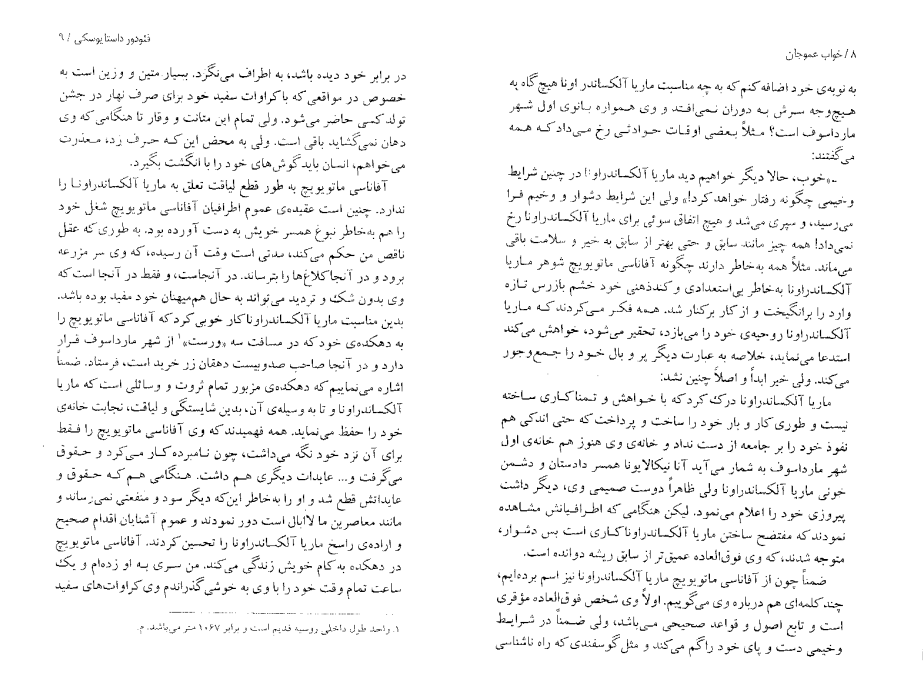 ۸ / خواب عموجان
به نوبه‌ی خود اضافه کنم که به چه مناسبت ماریا آلکساندر اونا هیچ‌گاه به
هیچ‌وجه سرش به دوران نمی‌افتد و وی همواره بانوی اول شهر
مارداسوف است؟ مثلاً بعضی اوقات حوادثی رخ می‌داد که همه
می‌گفتند:
ـ«خوب، حالا دیگر خواهیم دید ماریا آلکساندراونا در چنین شرایط
وخیمی چگونه رفتار خواهد کرد!» ولی این شرایط دشوار و وخیم فرا
می‌رسید، و سپری می‌شد و هیچ اتفاق سوئی برای ماریا آلکساندراونا رخ
نمی‌داد! همه چیز مانند سابق و حتی بهتر از سابق به خیر و سلامت باقی
می‌ماند. مثلاً همه به‌خاطر دارند چگونه آفاناسی ماتویویچ شوهر ماریا
آلکساندراونا به‌خاطر بی‌استعدادی و کندذهنی خود خشم بازرس تازه
وارد را برانگیخت و از کار برکنار شد. همه فکر می‌کردند که ماریا
آلکساندراونا روحیه‌ی خود را می‌بازد، تحقیر می‌شود، خواهش می‌کند
استدعا می‌نماید، خلاصه به عبارت دیگر پر و بال خود را جمع‌وجور
می‌کند. ولی خیر ابداً و اصلاً چنین نشد:
ماریا آلکساندراونا درک کرد که با خواهش و تمنا کاری ساخته
نیست و طوری کار و بار خود را ساخت و پرداخت که حتی اندکی هم
نفوذ خود را بر جامعه از دست نداد و خانه‌ی وی هنوز هم خانه‌ی اول
شهر مارداسوف به شمار می‌آید آنا نیکالایونا همسر دادستان و دشمن
خونی ماریا آلکساندراونا ولی ظاهراً دوست صمیمی وی، دیگر داشت
پیروزی خود را اعلام می‌نمود. لیکن هنگامی که اطرافیانش مشاهده
نمودند که مفتضح ساختن ماریا آلکساندراونا کاری است بس دشوار،
متوجه شدند، که وی فوق‌العاده عمیق‌تر از سابق ریشه دوانده است.
ضمناً چون از آفاناسی ماتویویچ ماریا آلکساندراونا نیز اسم برده‌ایم،
چند کلمه‌ای هم درباره وی می‌گوییم. اولاً وی شخص فوق‌العاده مؤقری
است و تابع اصول و قواعد صحیحی می‌باشد، ولی ضمناً در شرایط
وخیمی دست و پای خود را گم می‌کند و مثل گوسفندی که راه ناشناسی
فئودور داستایوسکی / ۹
در برابر خود دیده باشد، به اطراف می‌نگرد. بسیار متین و وزین است به
خصوص در مواقعی که با کراوات سفید خود برای صرف نهار در جشن
تولد کسی حاضر می‌شود. ولی تمام این متانت و وقار تا هنگامی که وی
دهان نمی‌گشاید باقی است. ولی به محض این که حرف زد، معذرت
می‌خواهم، انسان باید گوش‌های خود را با انگشت بگیرد.
آفاناسی ماتویویچ به طور قطع لیاقت تعلق به ماریا آلکساندراونا را
ندارد. چنین است عقیده‌ی عموم اطرافیان آفاناسی ماتویویچ شغل خود
را هم به‌خاطر نبوغ همسر خویش به دست آورده بود. به طوری که عقل
ناقص من حکم می‌کند، مدتی است وقت آن رسیده، که وی سر مزرعه
برود و در آنجا کلاغ‌ها را بترساند. در آنجاست، و فقط در آنجا است که
وی بدون شک و تردید می‌تواند به حال هم‌میهنان خود مفید بوده باشد.
بدین مناسبت ماریا آلکساندراونا کار خوبی کرد که آفاناسی ماتویویچ را
به دهکده‌ی خود که در مسافت سه «ورست»۱ از شهر مارداسوف قرار
دارد و در آنجا صاحب صدوبیست دهقان زر خرید است، فرستاد. ضمناً
اشاره می‌نماییم که دهکده‌ی مزبور تمام ثروت و وسائلی است که ماریا
آلکساندراونا و تا به وسیله‌ی آن، بدین شایستگی و لیاقت، نجابت خانه‌ی
خود را حفظ می‌نماید. همه فهمیدند که وی آفاناسی ماتویویچ را فقط
برای آن نزد خود نگه می‌داشت، چون نامبرده کار می‌کرد و حقوق
می‌گرفت و... عایدات دیگری هم داشت. هنگامی هم که حقوق و
عایداتش قطع شد و او را به‌خاطر این‌که دیگر سود و منفعتی نمی‌رساند و
مانند معاصرین ما لاابال است دور نمودند و عموم آشنایان اقدام صحیح
و اراده‌ی راسخ ماریا آلکساندراونا را تحسین کردند. آفاناسی ماتویویچ
در دهکده به کام خویش زندگی می‌کند. من سری به او زده‌ام و یک
ساعت تمام وقت خود را با وی به خوشی گذراندم وی کراوات‌های سفید
۱. واحد طول داخلی روسیه قدیم است و برابر ۱۰۶۷ متر می‌باشد. م.